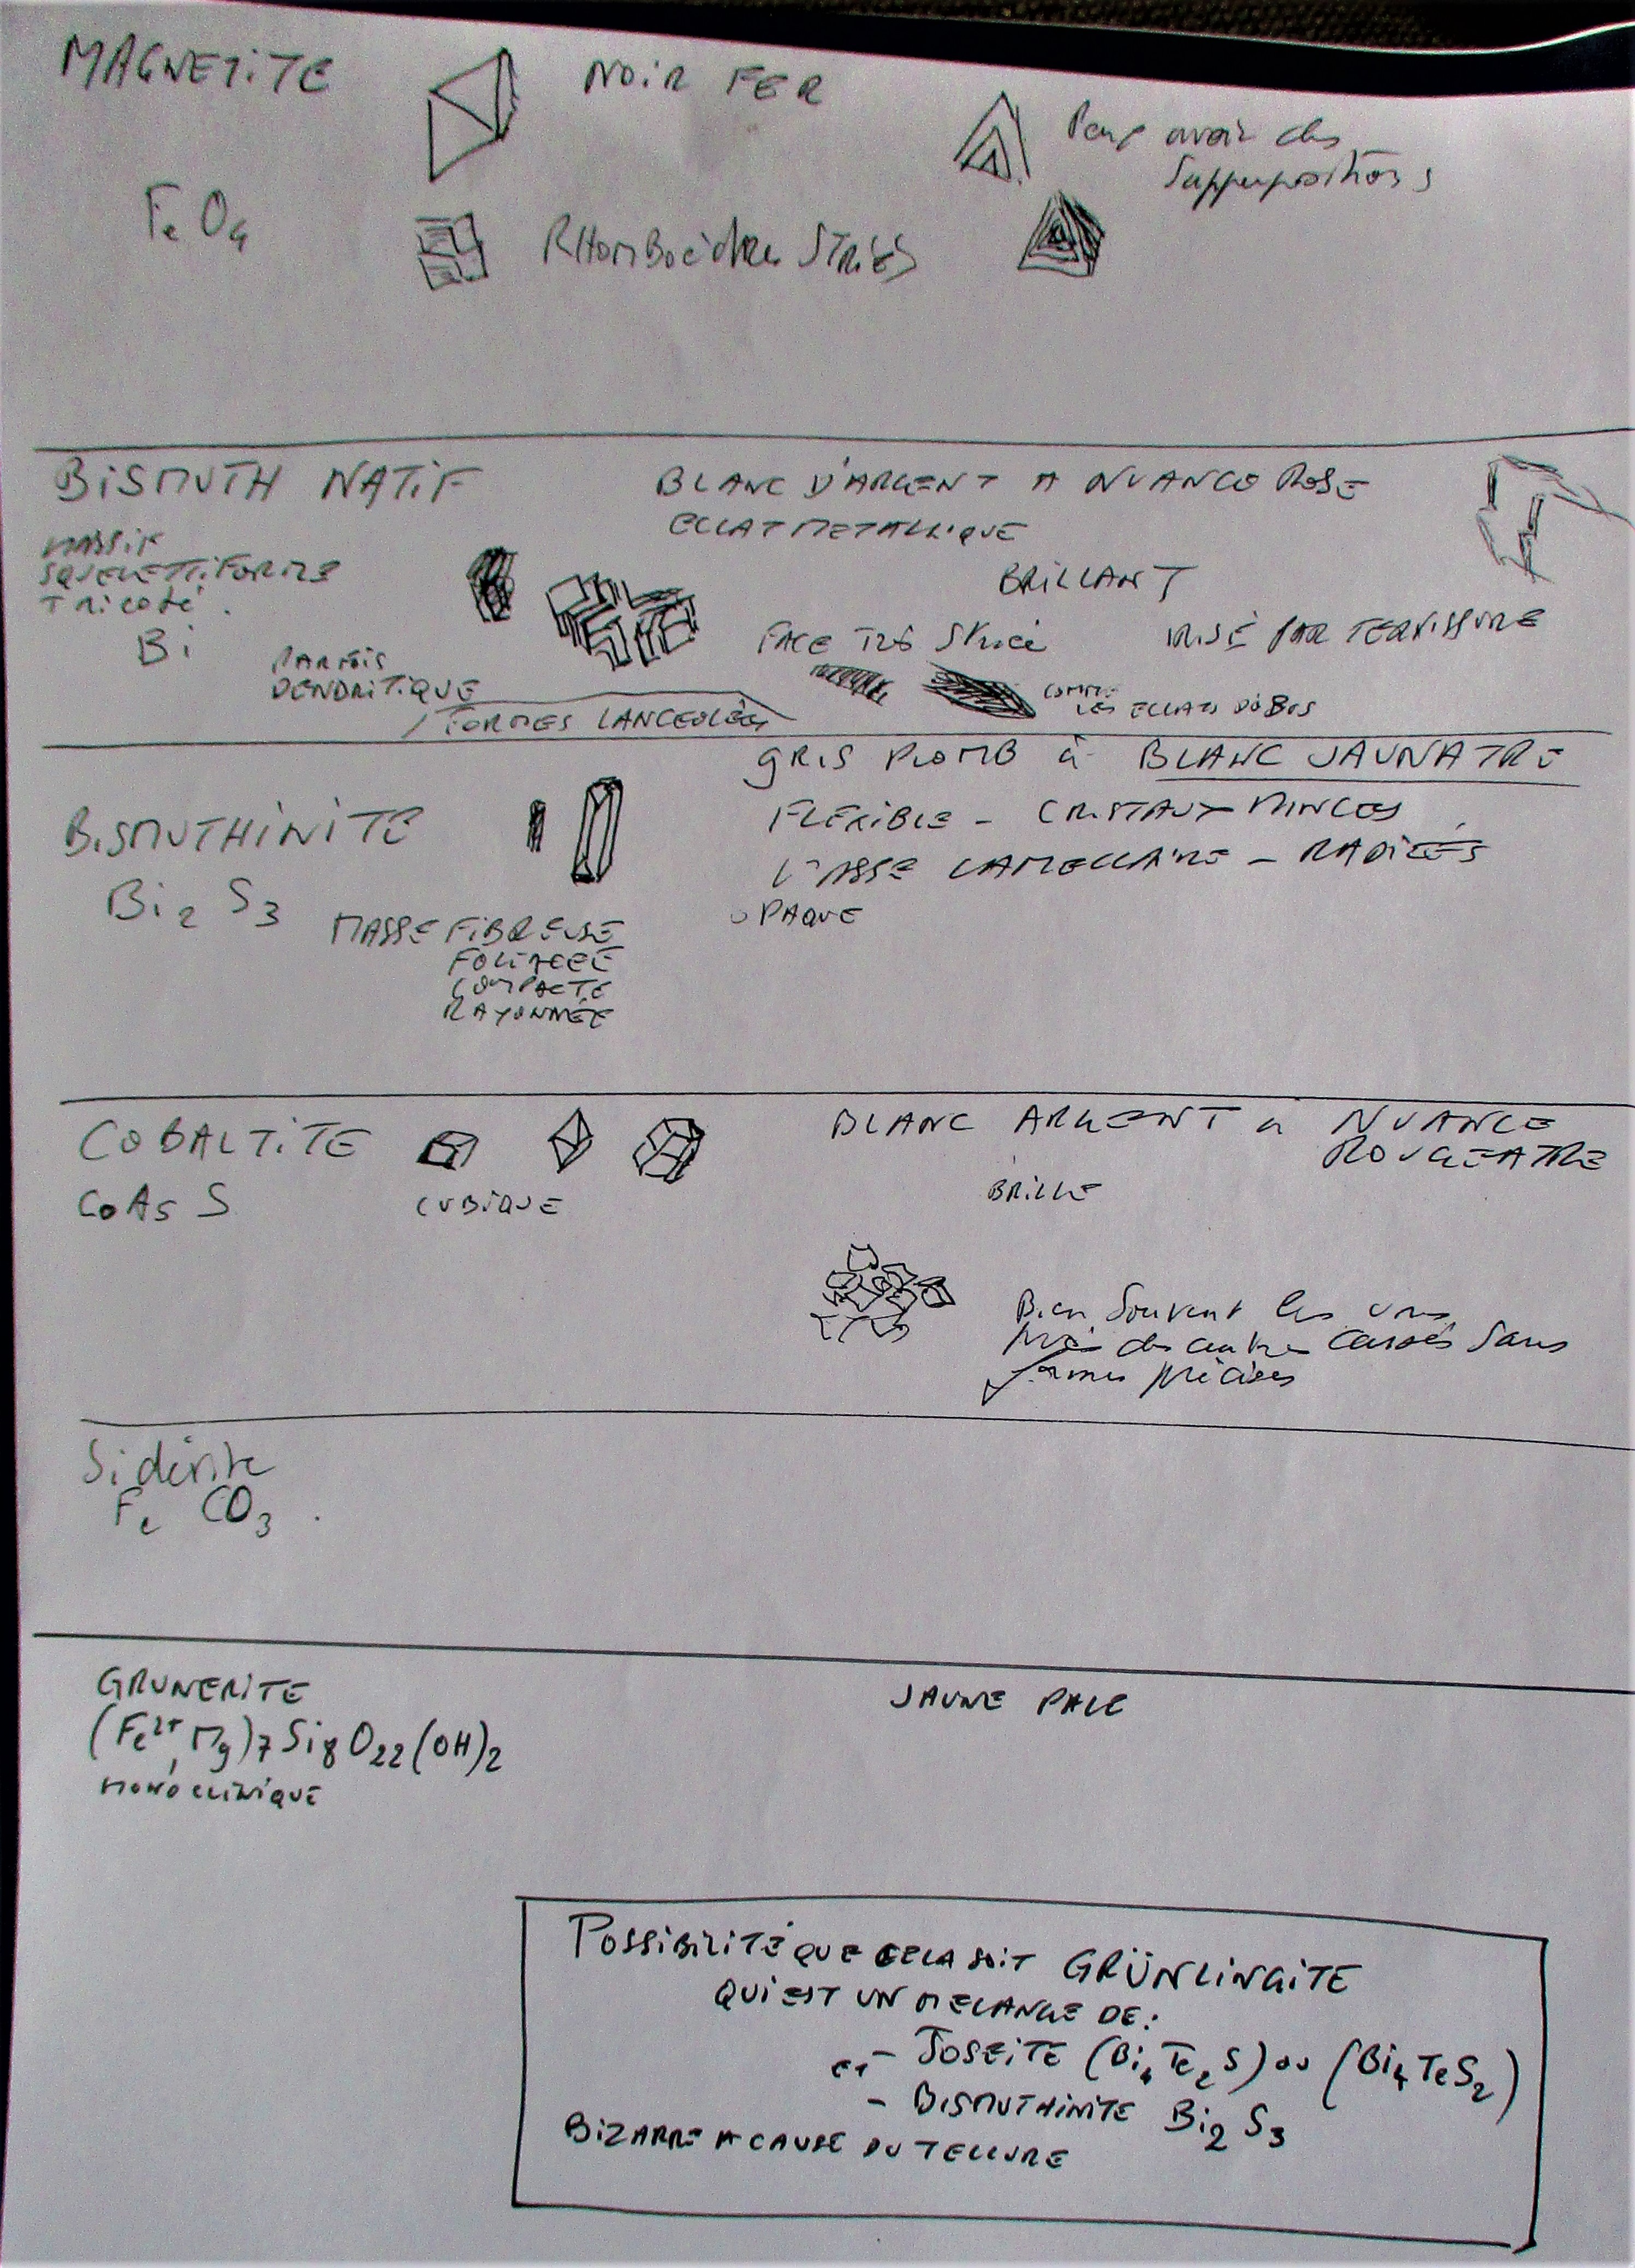 MAGNETITE
NOIR FER
Peut avoir des
Supperpositions
FeO4
RHOMBOèdres STRIÉS
BISMUTH NATIF
BLANC D'ARGENT A NUANCE ROSE
ECLAT METALLIQUE
MASSIF
SQUELETTIFORME
TRICOTé.
BRILLANT
Bi
FACE TRÉS Striée
IRISÉ PAR TERNISSURE
PARFOIS
DENDRITIQUE
COMME
LES ECLATS D'OBUS
FORMES LANCEOLÉES
GRIS PLOMB à BLANC JAUNATRE
BISMUTHINITE
FLEXIBLE - CRISTAUX MINCES
MASSE LAMELLAIRE - RADIÉES
Bi2 S3
OPAQUE
MASSE FIBREUSE
FOLIACEE
COMPACTE
RAYONNÉE
COBALTITE
BLANC ARGENT à NUANCE
ROUGEATRE
CoAs S
CUBIQUE
BRILLE
Bien Souvent les uns
près des autres cassés Sans
formes précises
Sidérite
Fe CO3.
GRUNERITE
JAUNE PALE
(Fe2+, Mg)7 Si8 O22 (OH)2
MONOCLINIQUE
POSSIBILITÉ QUE CELA SOIT GRÜNLINGITE
QUI EST UN MELANGE DE:
ET - JOSEITE (Bi4 Te2 S) ou (Bi4 TeS2)
- BISMUTHINITE Bi2 S3
BIZARRE A CAUSE DU TELLURE